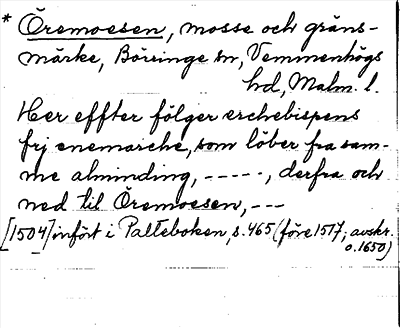 * Öremoesen, mosse och gräns-
märke, Börringe sn, Vemmenhögs
hd, Malm. l.
Her effter fölger erchebispens
frj enemarche, som löber fra sam-
me alminding, -----, derfra och
ned til Öremoesen, ---
[1504] infört i Palteboken, s. 465 (före 1517; avskr.
o. 1650)